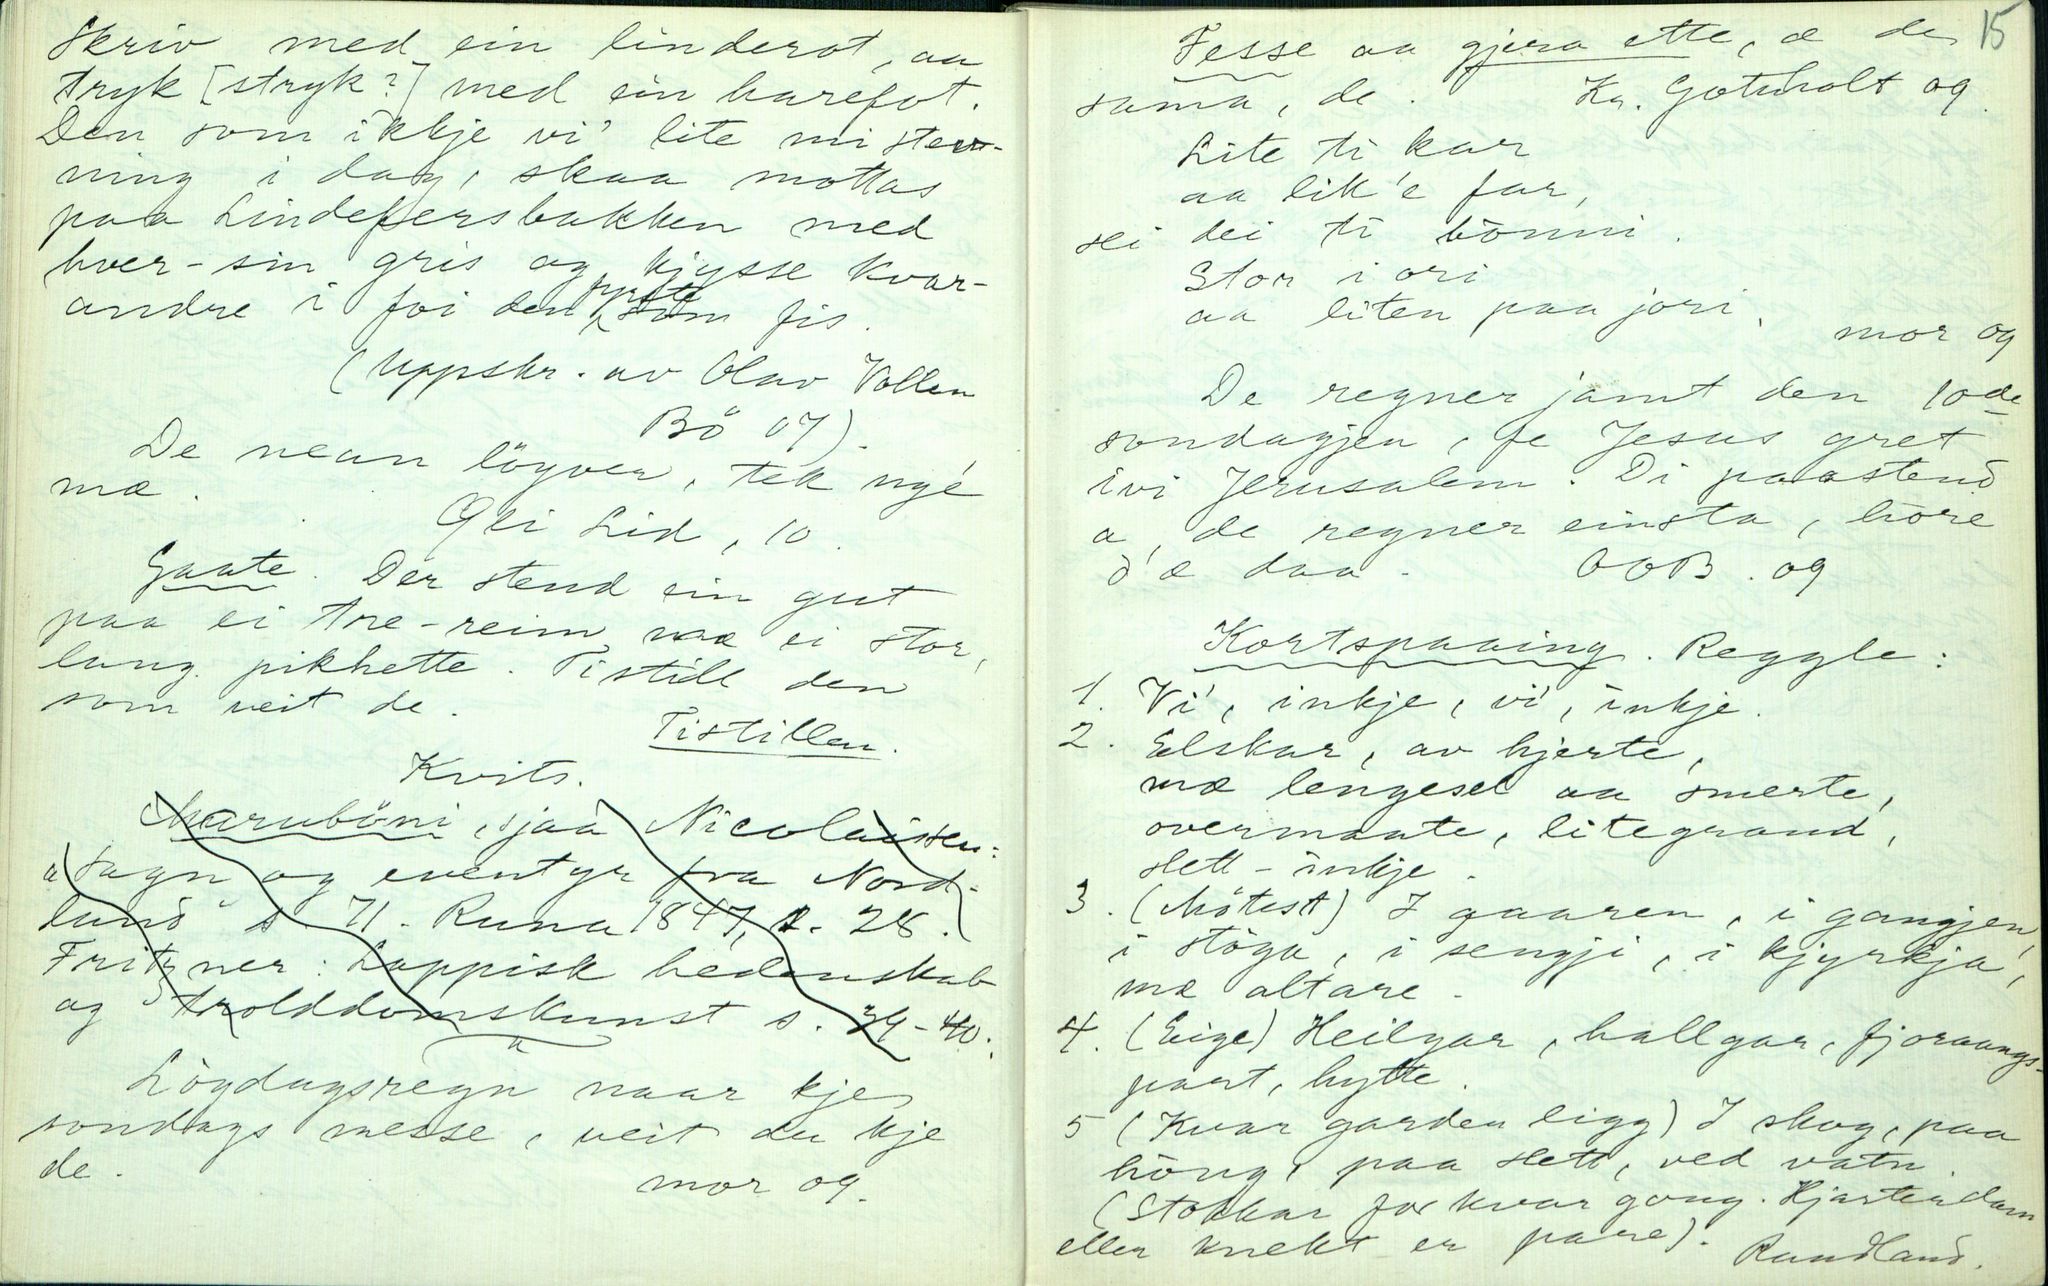 Skriv med ein linderot, aa
tryk [stryk?] med ein harefot.
Den som ikkje vi' lite mi stev-
ning i dag, skaa mottas
paa Lindefersbakken med
hver-sin gris og kjysse kvar-
andre i foi den fyste som fis.
(Uppskr. av Olav Vollen
Bö 07).
De nean löyver, tek nye
mæ.
Gli Lid, 10.
Gaate. Der stend ein gut
paa ei tre-reim mæ ei stor,
lang pikhette. Tistill den
som veit de.
Tistillen.
Kvits.
Maruböni, sjaa Nicolaissen:
"Sagn og eventyr fra Nord-
land" s. 71. Runa 1847, s. 28.
Fritzner: Lappisk hedenskab
og trolddomskunst s. 39-40.
Lögdagsregn naar kje
sondags messe, veit du kje
de.
mor og.
15
Fesse aa gjera ette, æ de
sama, de. Kr. Gotuholt og.
Lite ti kar
aa lik'e far,
sei dei ti bönni.
Stor i ori
aa liten paa jori.
mor og
De regner jamt den 10de
sondagjen, fe Jesus gret
ivi Jerusalem. Di paastend
a, de regner einsta, höre
d'æ daa. OOB. og
Kortspaaing. Reggle:
1. Vi', inkje, vi', inkje.
2. Elskar, av hjerte,
mæ lengsel aa smerte,
overmaate, litegrand,
slett-inkje.
3. (Mötest) I gaaren, i gangjen,
i stöga, i sengji, i kjyrkja,
mæ altare.
4. (Eige) Heilgar, hallgar, fjoraangs-
part, hytte.
5 (Kvar garden ligg) I skog, paa
haug, paa slett, ved vatn.
(Stokkar for kvar gong. Hjarterdam
eller knekt er paré).
Raudland.